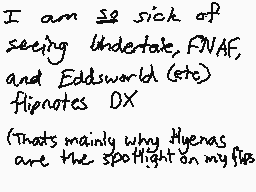 I am so sick of
seeing Undertale, FNAF,
and Eddsworld (etc)
flipnotes DX
(Thats mainly why Hyenas
are the spotlight on my flips